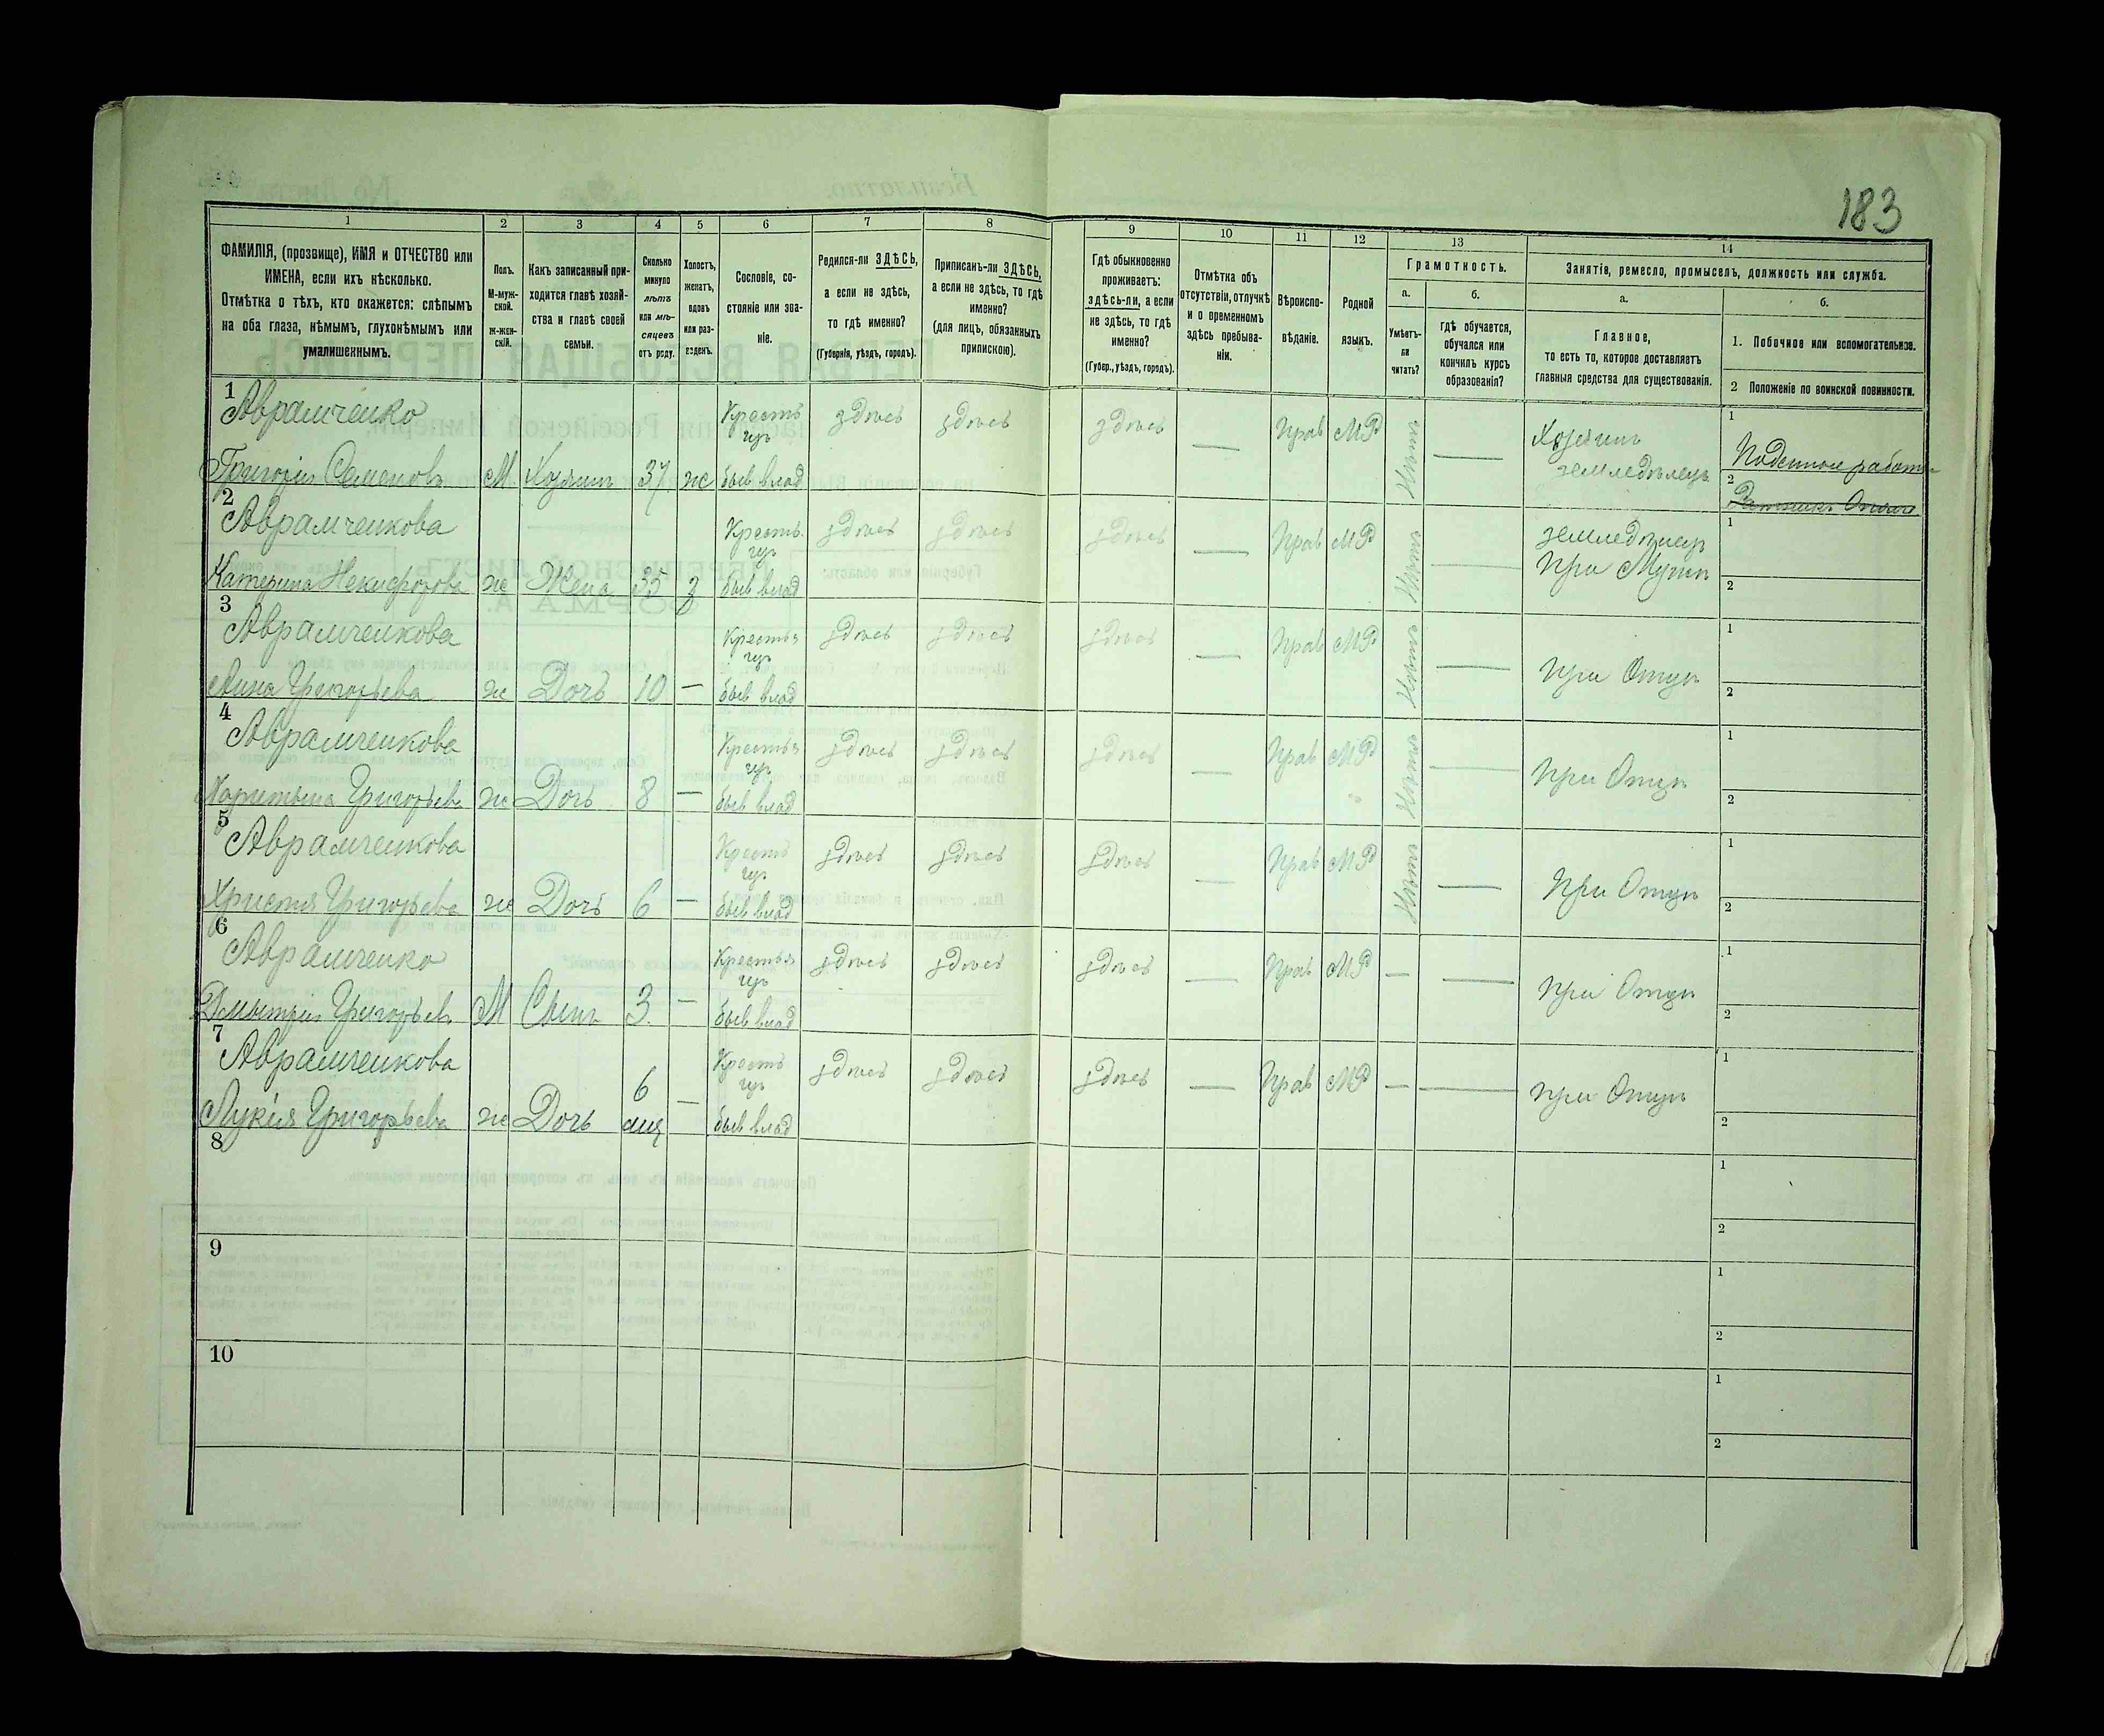 183
1
2
3
4
5
6
7
8
9
10
11
12
13
14
ФАМИЛІЯ, (прозвище), ИМЯ и ОТЧЕСТВО или
ИМЕНА, если ихъ нѣсколько.
Отмѣтка о тѣхъ, кто окажется: слѣпымъ
на оба глаза, нѣмымъ, глухонѣмымъ или
умалишеннымъ.
Полъ.
М-муж-
ской.
ж-жен-
скій.
Какъ записанный при-
ходится главѣ хозяй-
ства и главѣ своей
семьи.
Сколько
минуло
лѣтъ
или мѣ-
сяцевъ
отъ роду.
Холостъ,
женатъ,
вдовъ
или раз-
веденъ.
Сословіе, со-
стояніе или зва-
ніе.
Родился-ли ЗДѢСЬ,
а если не здѣсь,
то гдѣ именно?
(Губернія, уѣздъ, городъ).
Приписанъ-ли ЗДѢСЬ,
а если не здѣсь, то гдѣ
именно?
(для лицъ, обязанныхъ
припискою).
Гдѣ обыкновенно
проживаетъ:
здѣсь-ли, а если
не здѣсь, то гдѣ
именно?
(Губер., уѣздъ, городъ).
Отмѣтка объ
отсутствіи, отлучкѣ
и о временномъ
здѣсь пребыва-
ніи.
Вѣроиспо-
вѣданіе.
Родной
языкъ.
Грамотность.
а.
Умѣетъ-
ли
читать?
б.
гдѣ обучается,
обучался или
кончилъ курсъ
образованія?
Занятія, ремесло, промыселъ, должность или служба.
а.
Главное,
то есть то, которое доставляетъ
главныя средства для существованія.
б.
1. Побочное или вспомогательное.
2 Положеніе по воинской повинности.
1
Аврамченко
Григорій Семеновъ М Хозяинъ 37 ж
Крестьянъ
быв влад
здѣсь здѣсь здѣсь — Прав МР нѣтъ —
Хозяинъ
земледѣлецъ
1
Поденные работы
2
2
Аврамченкова
Катерина Некифорова ж Жена 35 з
Крестьянъ
быв влад
здѣсь здѣсь здѣсь — Прав МР нѣтъ —
земледѣлец
При Мужѣ
1
2
3
Аврамченкова
Анна Григорьева ж Дочь 10 —
Крестьян
быв влад
здѣсь здѣсь здѣсь — Прав МР нѣтъ —
при Отцѣ
1
2
4
Аврамченкова
Харитына Григорьева ж Дочь 8 —
Крестьян
быв влад
здѣсь здѣсь здѣсь — Прав МР нѣтъ —
при Отцѣ
1
2
5
Аврамченкова
Христя Григорьева ж Дочь 6 —
Крестьян
быв влад
здѣсь здѣсь здѣсь — Прав МР нѣтъ —
при Отцѣ
1
2
6
Аврамченко
Дмытрій Григорьев М Сынъ 3 —
Крестьян
быв влад
здѣсь здѣсь здѣсь — Прав МР — —
при Отцѣ
1
2
7
Аврамченкова
Лукія Григорьева ж Дочь 6 мц —
Крестьян
быв влад
здѣсь здѣсь здѣсь — Прав МР — —
при Отцѣ
1
2
8
1
2
9
1
2
10
1
2